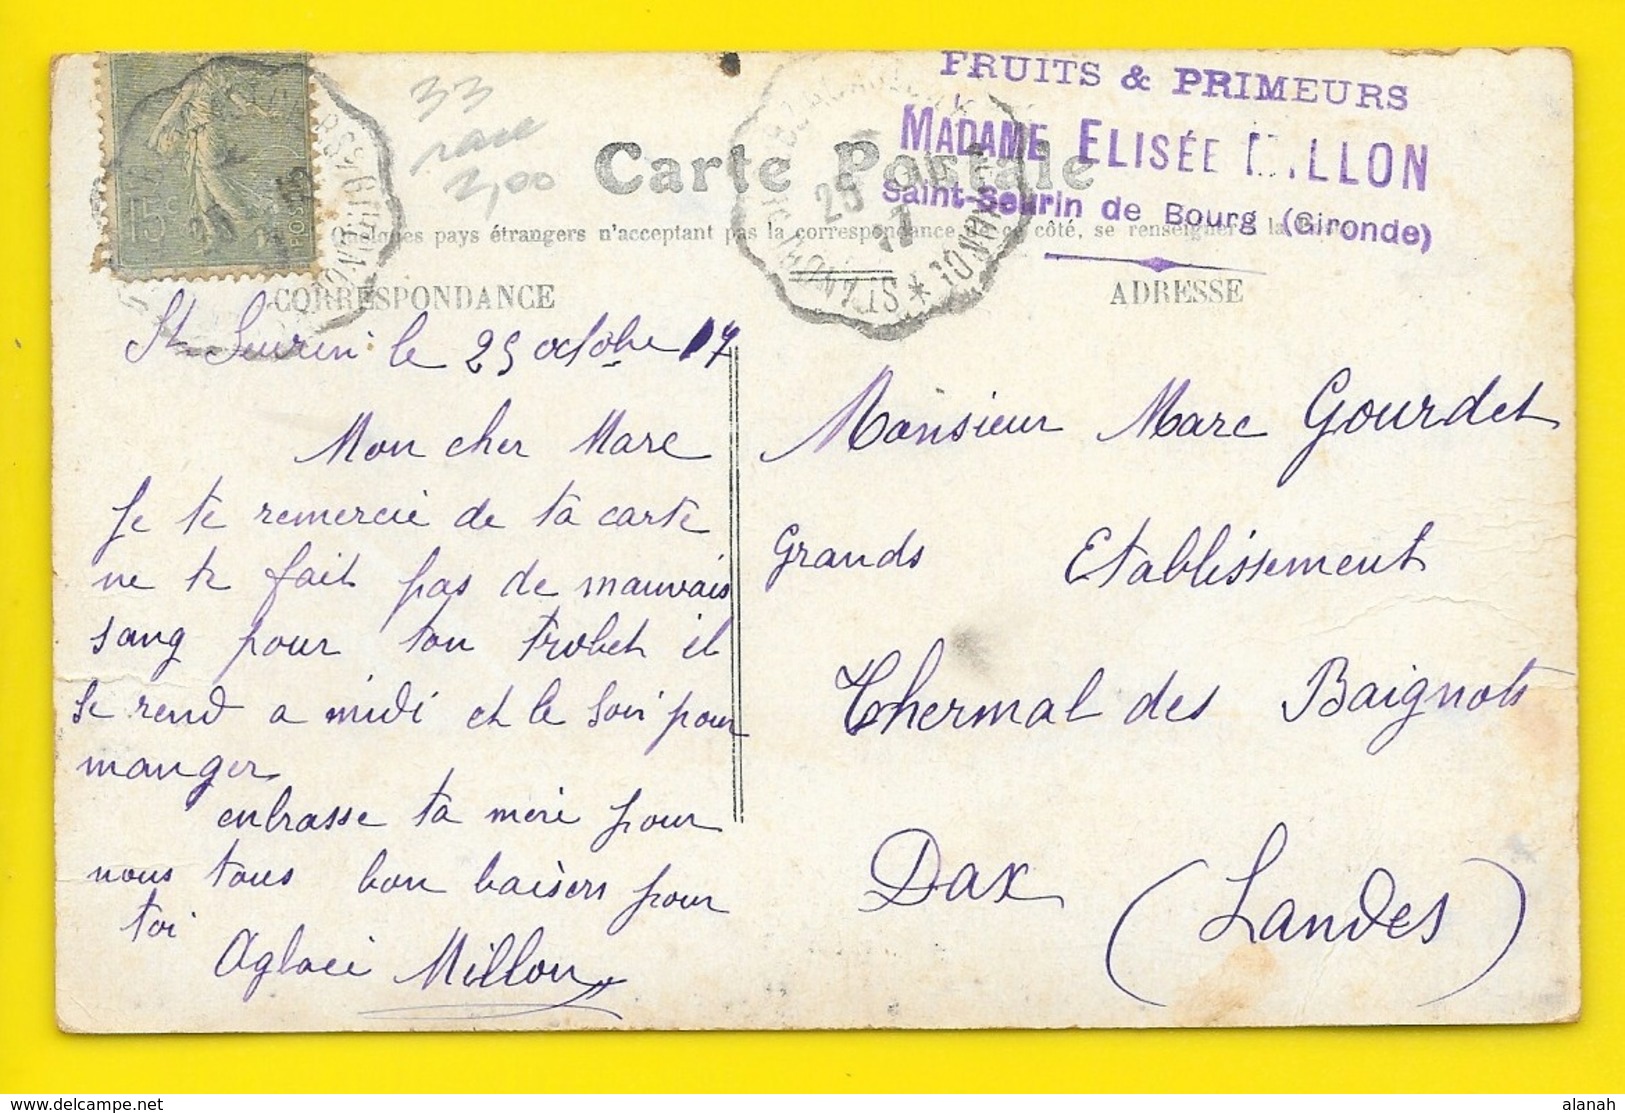 33
rare
2,00
FRUITS & PRIMEURS
MADAME ELISÉE MILLON
Saint-Seurin de Bourg (Gironde)
Carte Postale
Quelques pays étrangers n'acceptent pas la correspondance de ce côté, se renseigner à la Poste
15c
CORRESPONDANCE
ADRESSE
St Seurin le 25 octobre 17
Mon cher Marc
Je te remercie de ta carte
ne te fait pas de mauvais
sang pour ton trobet il
se rend a midi et le soir pour
manger
enbrasse ta mère pour
nous tous bon baisers pour
toi
Aglaé Millon
Monsieur Marc Gourdet
Grands Etablissement
Thermal des Baignots
Dax
(Landes)
alanah